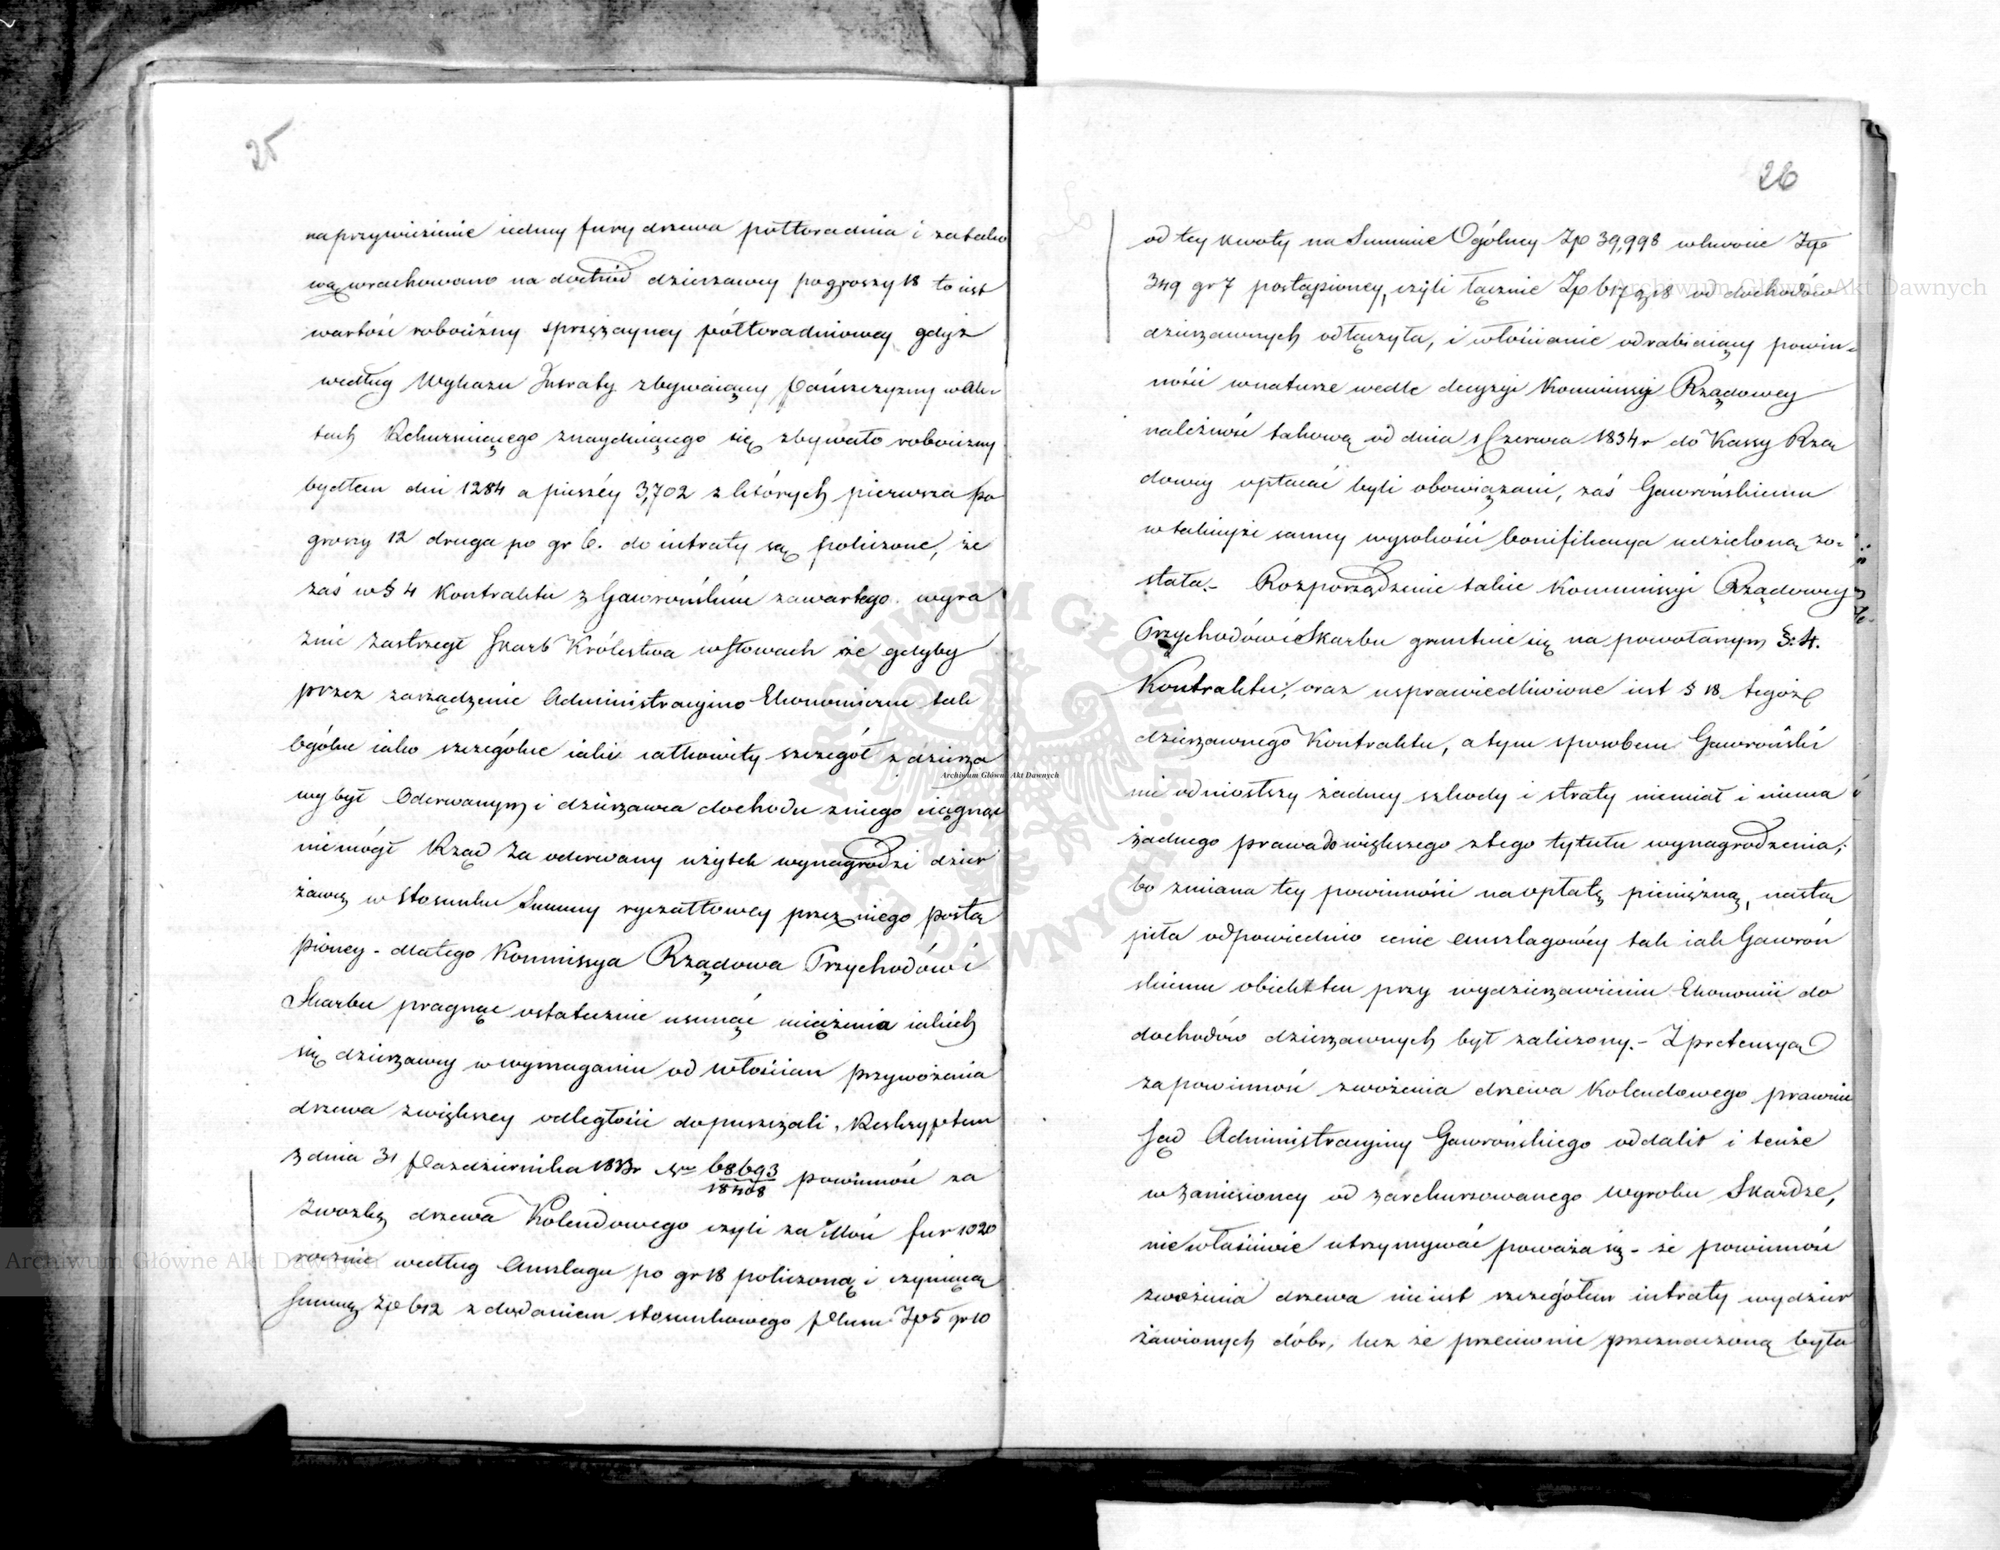 25
na przywiezienie iedney fury drzewa półtoradnia i za tako
wą wrachowano na dochód dzierzawcy po groszy 18 to iest
wartość robocizny sprzężayney półtoradniowey gdyż
według Wykazu Intraty zbywaiącey Pańszczyzny w Ak-
tach Rekursuiącego znayduiącego się zbywało robocizny
bydłem dni 1284 a pieszéy 3,702 z których pierwsza po
groszy 12 druga po gr 6. do intraty są policzone, że
zaś w § 4 Kontraktu z Gawrońskim zawartego wyra
znie zastrzegł Skarb Królestwa w słowach że gdyby
przez zarządzenie Administracyino Ekonomiczne tak
Ogólne iako szczególne iakie całkowity szczegół z dzierza
wy był Oderwanym i dzierzawca dochodu z niego ciągnąć
niemógł Rząd za oderwany użytek wynagrodzi dzier
żawcę w stosunku Summy ryczałtowey przez niego postą
pioney - dlatego Kommissya Rządowa Przychodów i
Skarbu pragnąc ostatecznie usunąć uciążenia iakich
się dzierzawcy w wymaganiu od włościan przywożenia
drzewa z większey odległości dopuszczali, Reskryptem
z dnia 31 Października 1833r Nro 68693/18408 powinność za
zwozkę drzewa Kolendowego czyli za ilość fur 1020
rocznie według Anszlagu po gr 18 policzoną i czyniącą
Summę Zł 612 z dodaniem stosunkowego Plus Zł 5 gr 10
26
od tey kwoty na Summie Ogólney Zł 39,998 w kwocie Zł
349 gr 7 postąpioney, czyli łącznie Zł 617 gr 18 od dochodów
dzierzawnych odłączyła, i włościanie odrabiaiący powin-
ność w naturze wedle decyzyi Kommissyi Rządowey
należność takową od dnia 1 Czerwca 1834r do Kassy Rzą
dowey opłacać byli obowiązani, zaś Gawrońskiemu
w takieyże samey wysokości bonifikacya udzieloną zo-
stała.- Rozporządzenie takie Kommissyi Rządowey
Przychodów i Skarbu gruntuie się na powołanym §: 4.
Kontraktu, oraz usprawiedliwione iest § 18 tegoż
dzierzawnego Kontraktu, a tym sposobem Gawroński
nie odniosłszy żadney szkody i straty niemiał i niema
żadnego prawa do większego z tego tytułu wynagrodzenia;
bo zmiana tey powinności na opłatę pieniężną, nastą
piła odpowiednio cenie anszlagowéy tak iak Gawroń
skiemu obiekt ten przy wydzierzawieniu Ekonomii do
dochodów dzierzawnych był zaliczony.- Z pretensyą
za powinność zwożenia drzewa Kolendowego prawnie
Sąd Administracyiny Gawrońskiego oddalił i tenże
w zaniesioney od zarekursowanego Wyroku Skardze,
niewłaściwie utrzymywać poważa się - że powinność
zwożenia drzewa nie iest szczegółem intraty wydzier
żawionych dóbr, lecz że przeciwnie przeznaczoną była
Archiwum Główne Akt Dawnych
Archiwum Główne Akt Dawnych
Archiwum Główne Akt Dawnych
ARCHIWUM GŁÓWNE AKT DAWNYCH